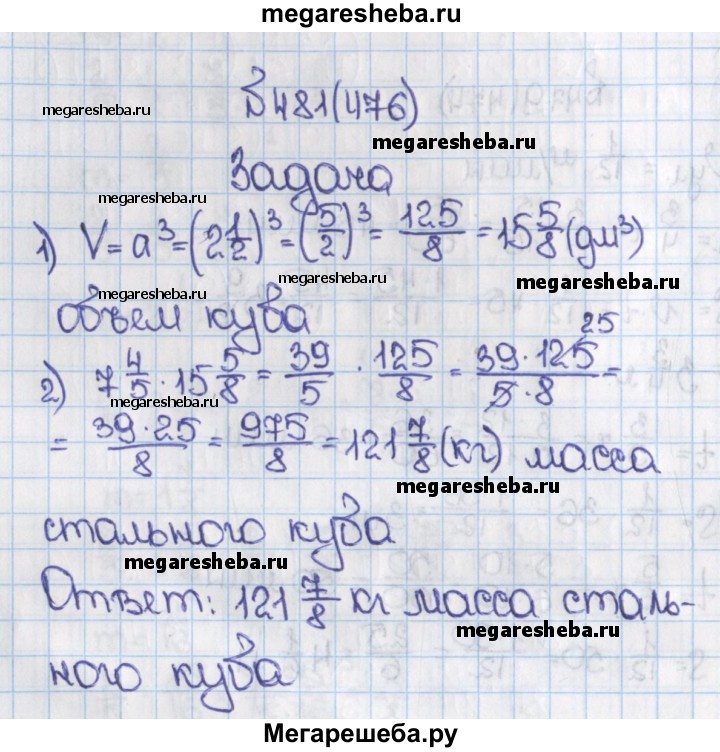 megaresheba.ru
№481(476)
megaresheba.ru
megaresheba.ru
Задача
megaresheba.ru
1) V=a³=(2 1/2)³=(5/2)³=125/8=15 5/8(дм³)
megaresheba.ru
megaresheba.ru
megaresheba.ru
объем куба
25
2) 7 4/5·15 5/8=39/5·125/8=39·125/5·8=
megaresheba.ru
=39·25/8=975/8=121 7/8(кг) масса
megaresheba.ru
стального куба
megaresheba.ru
Ответ: 121 7/8 кг масса сталь-
megaresheba.ru
ного куба
Мегарешеба.ру